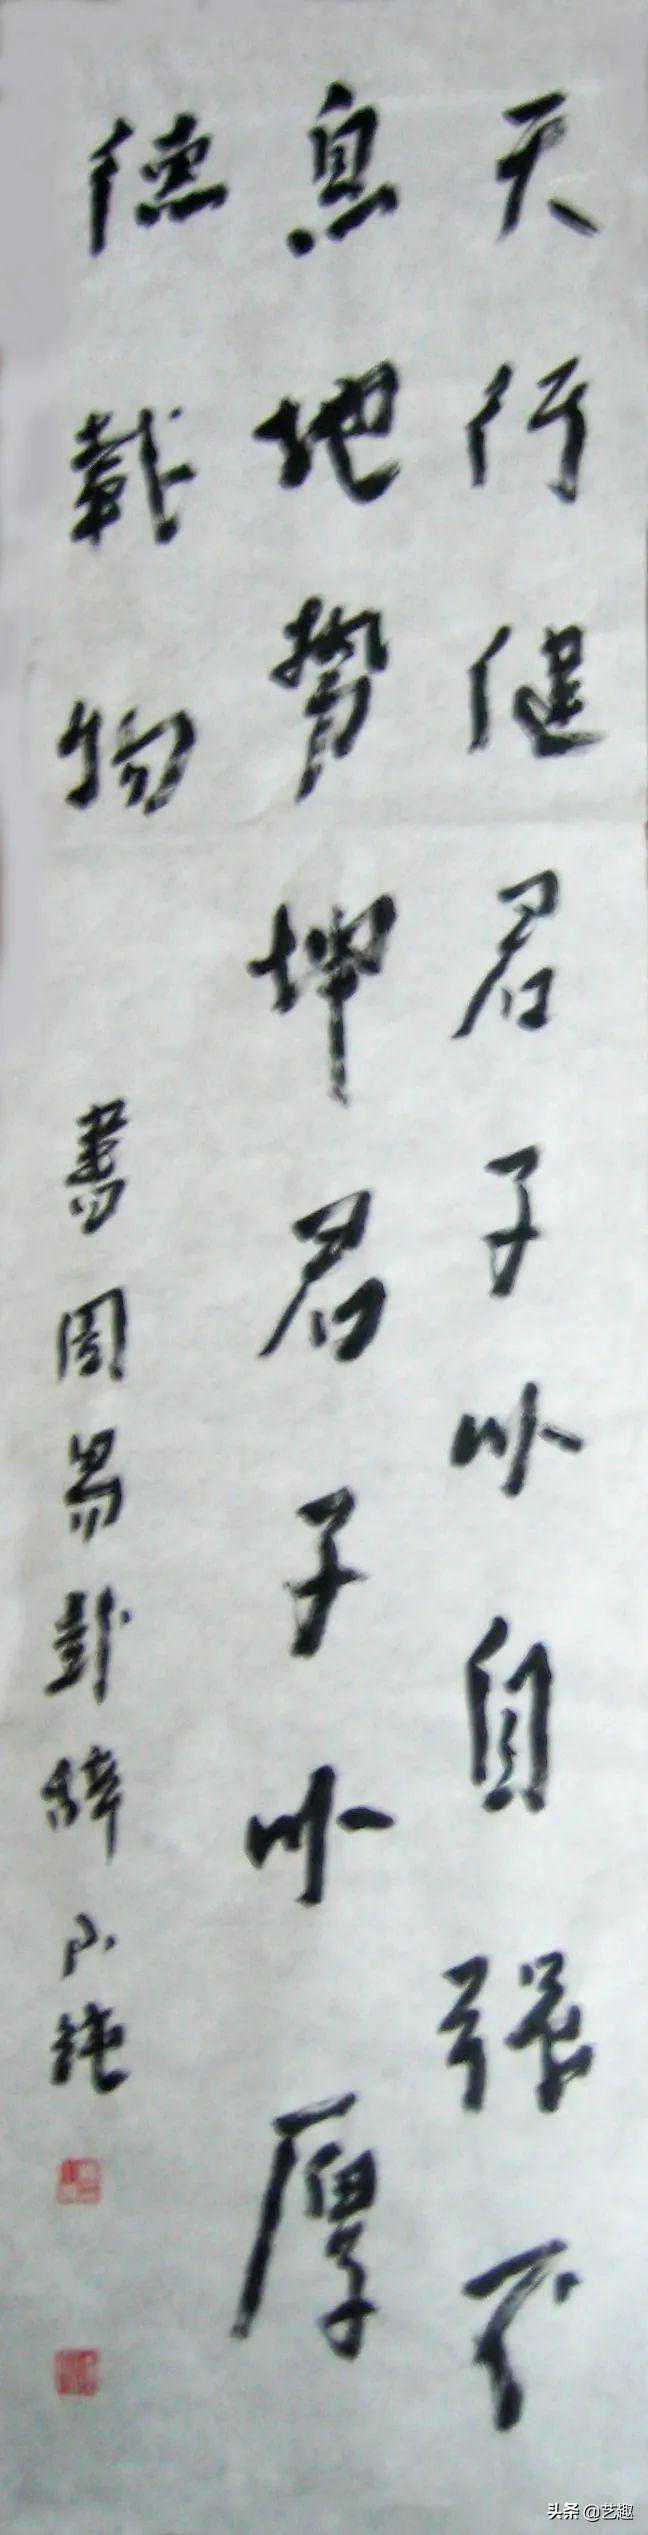 天行健君子以自强不
息地势坤君子以厚
德载物
書周易卦辞不鈍
头条@艺趣